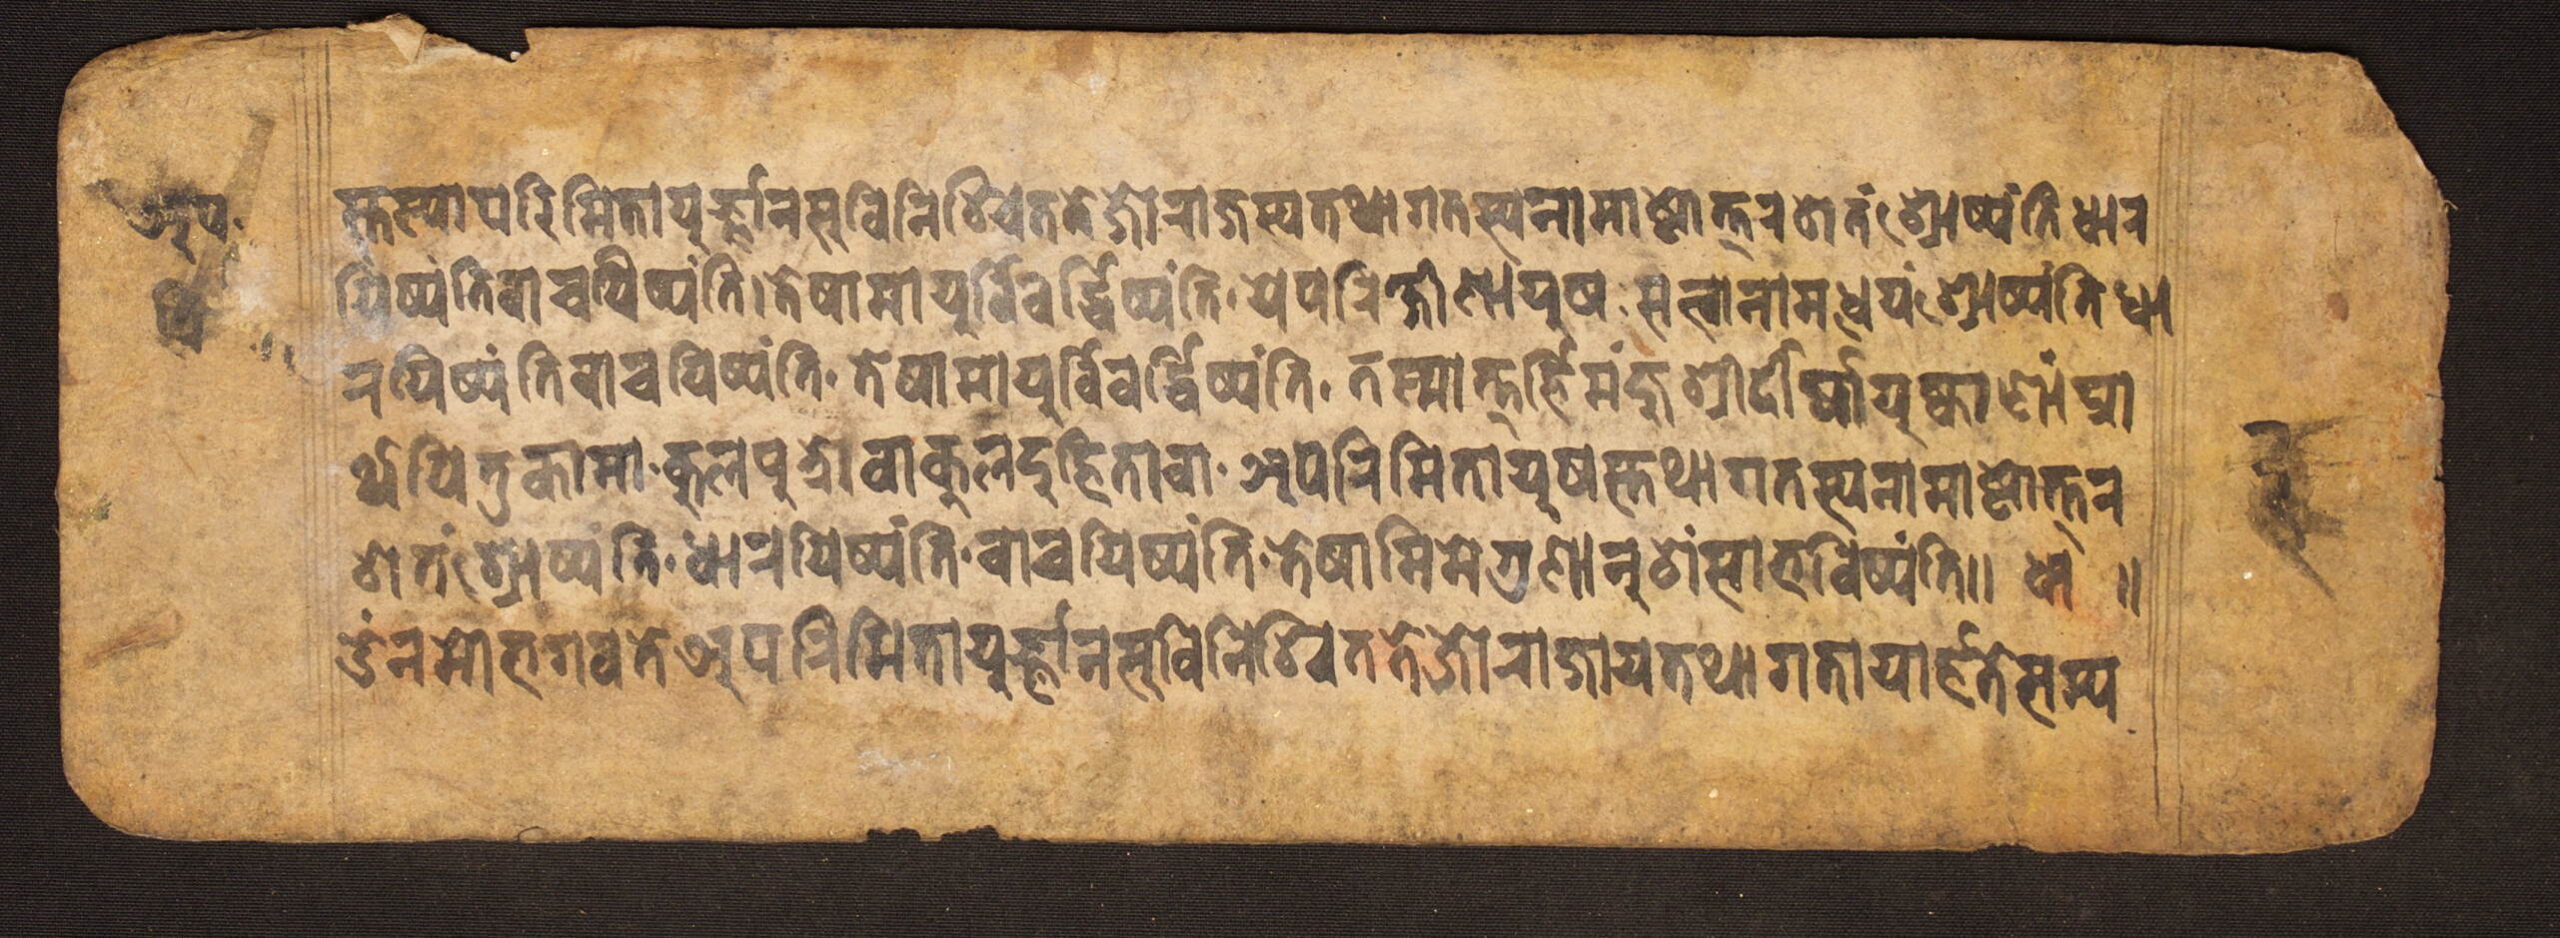 स्तस्यापरिमितायुर्ज्ञानसुविनिश्चिततेजोराजस्यतथागतस्यनामाष्टोत्तरशतंश्रोष्यंतिधार
यिष्यंतिवाचयिष्यंति।तेषामायुर्विवर्द्धिष्यंति।येपरिक्षीणायुषःसत्वानामधेयंश्रोष्यंतिधा
रयिष्यंतिवाचयिष्यंति।तेषामायुर्विवर्द्धिष्यंति।तस्मात्तर्हिमंजुश्रीदीर्घायुष्काणांप्रा
र्थयितुकामा।कुलपुत्रोवाकुलदुहितावा।अपरिमितायुषस्तथागतस्यनामाष्टोत्तर
शतंश्रोष्यंति।धारयिष्यंति।वाचयिष्यंति।तेषामिमेगुणानुशंसाभविष्यंति॥ ॥
उंनमोभगवतेअपरिमितायुर्ज्ञानसुविनिश्चिततेजोराजायतथागतायार्हतेसम्य